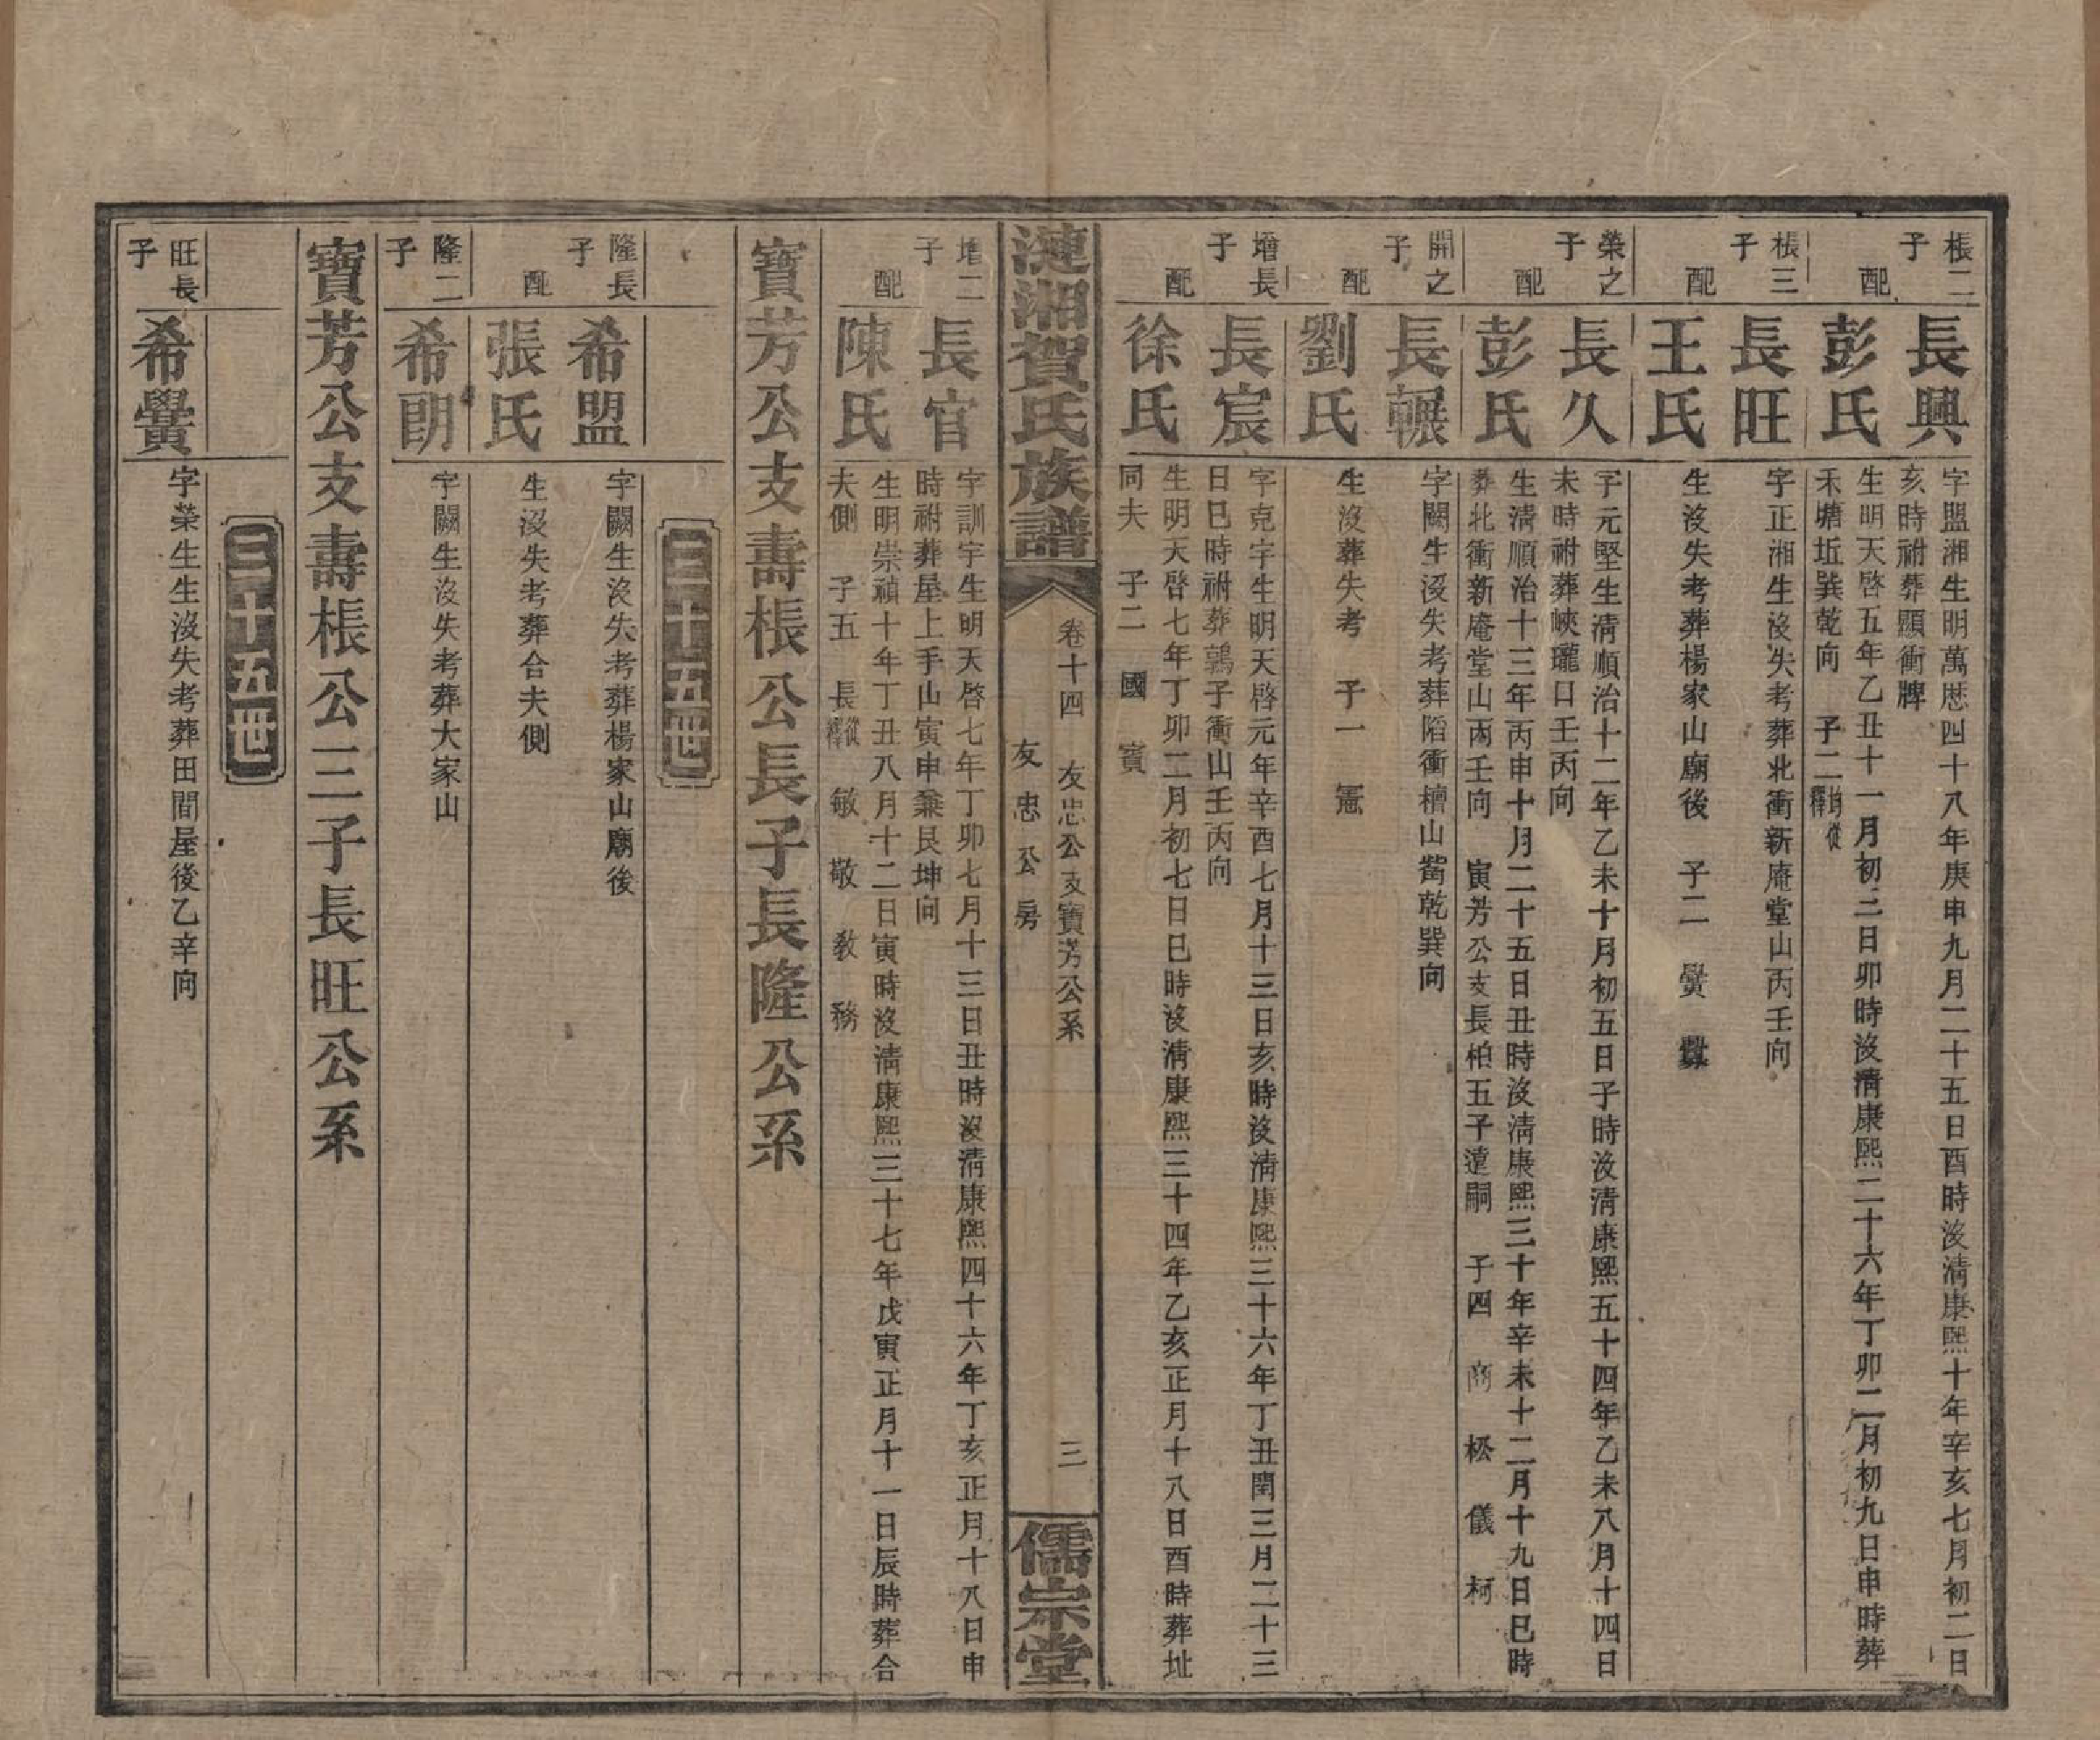 棖二子
長興
字盟湘生明萬歷四十八年庚申九月二十五日酉時沒清康熙十年辛亥七月初二日
亥時祔葬顯衝牌
配
彭氏
生明天啓五年乙丑十一月初三日卯時沒清康熙二十六年丁卯二月初九日申時葬
禾塘坵巽乾向 子二
棖三子
長旺
字正湘生沒失考葬北衝新庵堂山丙壬向
配
王氏
生沒失考葬楊家山廟後 子二 黌
榮之子
長久
字元堅生清順治十二年乙未十月初五日子時沒清康熙五十四年乙未八月十四日
未時祔葬峽瓏口壬丙向
配
彭氏
生清順治十三年丙申十月二十五日丑時沒清康熙三十年辛未十二月十九日巳時
葬北衝新庵堂山丙壬向 寅芳公支長柏五子遠嗣 子四 商 松 儀 柯
開之子
長輾
字闕生沒失考葬陷衝檀山嘴乾巽向
配
劉氏
生沒葬失考 子一 憲
增長子
長宸
字克宇生明天啓元年辛酉七月十三日亥時沒清康熙三十六年丁丑閏三月二十三
日巳時祔葬鶉子衝山壬丙向
配
徐氏
生明天啓七年丁卯二月初七日巳時沒清康熙三十四年乙亥正月十八日酉時葬址
同夫 子二 國 賓
漣湘賀氏族譜
卷十四 友忠公支寶芳公系 三
友忠公房
儒宗堂
增二子
長官
字訓宇生明天啓七年丁卯七月十三日丑時沒清康熙四十六年丁亥正月十八日申
時祔葬屋上手山寅申兼艮坤向
配
陳氏
生明崇禎十年丁丑八月十二日寅時沒清康熙三十七年戊寅正月十一日辰時葬合
夫側 子五 長 敏 敬 教 務
寶芳公支壽棖公長子長隆公系
三十五世
隆長子
希盟
字闕生沒失考葬楊家山廟後
配
張氏
生沒失考葬合夫側
隆二子
希朗
字闕生沒失考葬大家山
寶芳公支壽棖公三子長旺公系
三十五世
旺長子
希黌
字榮生生沒失考葬田間屋後乙辛向